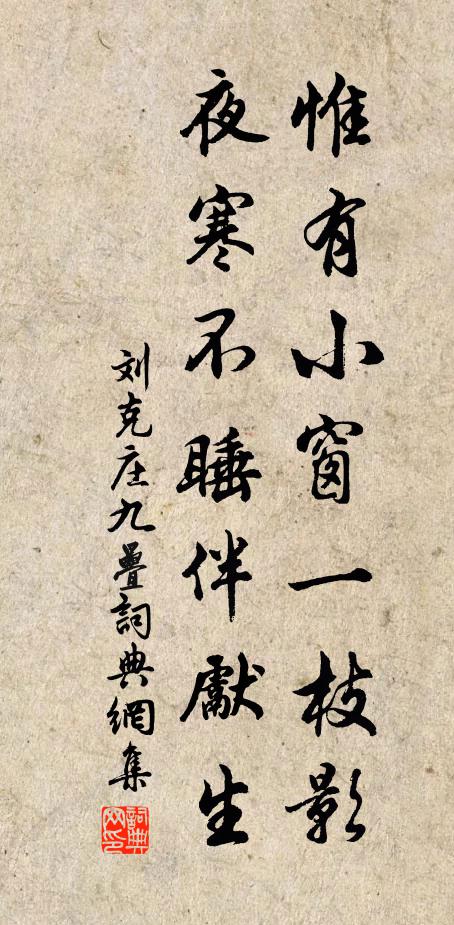 惟有小窗一枝影
夜寒不睡伴獻生
刘克庄九疊詞典網集
詞典网印